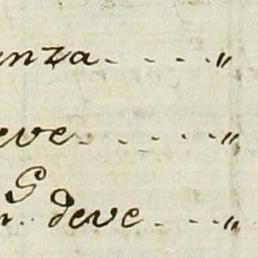 nza - - - - "
eve - - - - "
G
deve - - - "